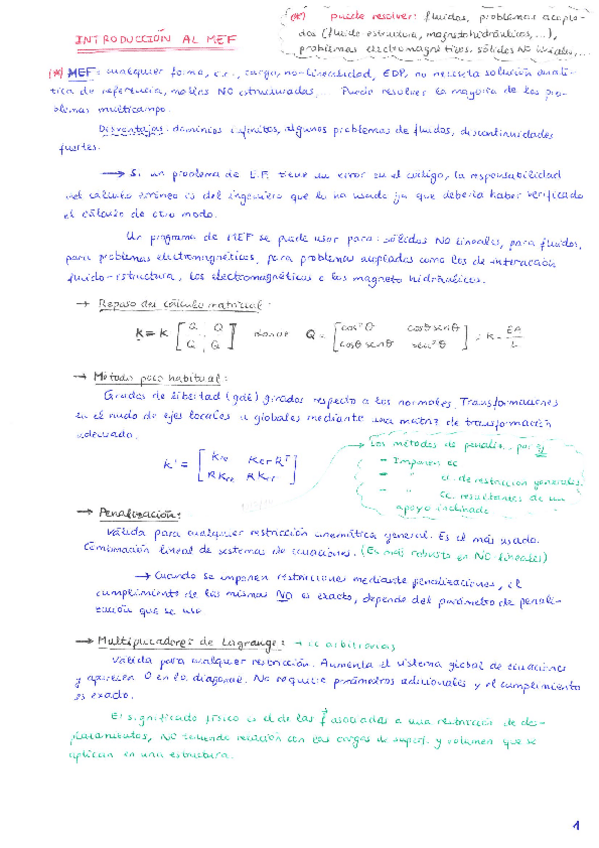 INTRODUCCIÓN AL MEF
(*) puede resolver: fluidos, problemas acopla-
dos (fluido estructura, magnetohidráulicos,...),
problemas electromagnéticos, sólidos NO lineales,...
(*) MEF: cualquier forma, c.c., carga, no-linealidad, EDP, no necesita solución analí-
tica de referencia, mallas NO estructuradas,... Puede resolver la mayoría de los pro-
blemas multicampo.
Desventajas: dominios infinitos, algunos problemas de fluidos, discontinuidades
fuertes.
→ Si un problema de E.F. tiene un error en el código, la responsabilidad
del cálculo erróneo es del ingeniero que lo ha usado ya que debería haber verificado
el cálculo de otro modo.
Un programa de MEF se puede usar para: sólidos NO lineales, para fluidos,
para problemas electromagnéticos, para problemas acoplados como los de interacción
fluido-estructura, los electromagnéticos o los magneto hidráulicos.
→ Repaso del cálculo matricial:
K = K [Q Q
Q Q] donde Q = [cos²θ cosθ senθ
cosθ senθ sen²θ] ; K = EA/L
→ Método poco habitual:
Grados de libertad (gdl) girados respecto a los normales. Transformaciones
en el nudo de ejes locales a globales mediante una matriz de transformación
adecuada.
K' = [Kee Ker Rᵀ
RKre RKrr]
Los métodos de penaliz. por
- Imponen cc
- " cc. de restricción generales.
- " cc. resultantes de un
apoyo inclinado
→ Penalización:
Válida para cualquier restricción cinemática general. Es el más usado.
Combinación lineal de sistemas de ecuaciones. (Es más robusto en NO lineales)
→ Cuando se imponen restricciones mediante penalizaciones, el
cumplimiento de las mismas NO es exacto, depende del parámetro de penali-
zación que se use
→ Multiplicadores de Lagrange: → cc arbitrarias
Válida para cualquier restricción. Aumenta el sistema global de ecuaciones
y aparecen 0 en la diagonal. No requiere parámetros adicionales y el cumplimiento
es exacto.
El significado físico es el de las f asociadas a una restricción de des-
plazamientos, NO teniendo relación con las cargas de superf. y volumen que se
aplican en una estructura.
1